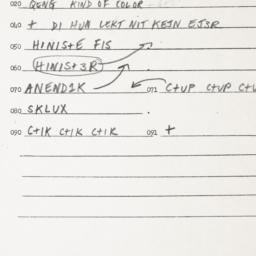 020 QENG KIND OF COLOR
040 + DI HUM LEKT NIT KEJN EJSR
050 HINIS+E FIS
060 HINIS+3R
070 ANEND1K 071 C+UP C+UP C+U
080 SKLUX
090 C+1K C+1K C+1K 091 +